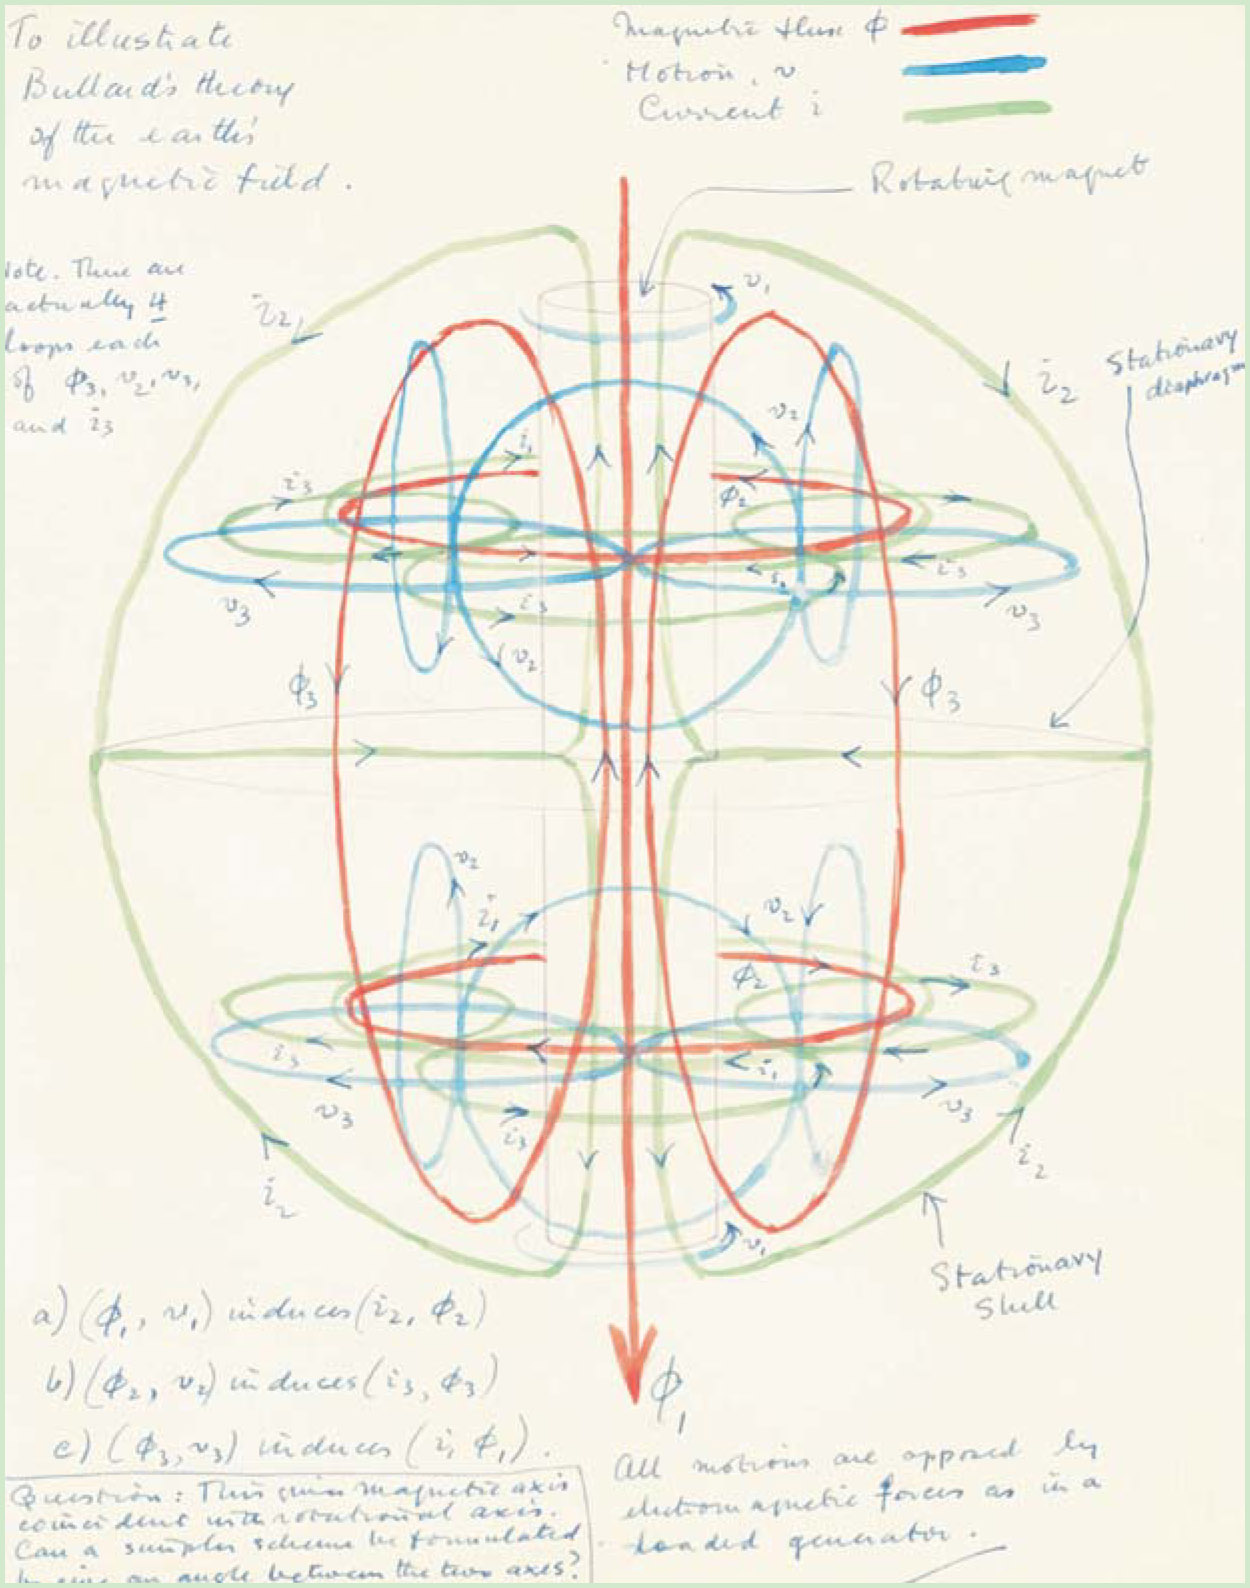 To illustrate
Bullard's theory
of the earth's
magnetic field.
Magnetic flux ϕ
Motion, v
Current i
Rotating magnet
Note. There are
actually 4
loops each
of ϕ3, v2, v3,
and i3
i2
v1
i2
Stationary
diaphragm
v2
i1
ϕ2
i3
i3
i3
v3
v3
v2
ϕ3
ϕ3
v2
i1
v2
ϕ2
i3
i3
i1
v3
v3
i3
i2
i2
v1
Stationary
Shell
a) (ϕ1, v1) induces (i2, ϕ2)
b) (ϕ2, v2) induces (i3, ϕ3)
c) (ϕ3, v3) induces (i, ϕ1).
ϕ1
All motions are opposed by
electromagnetic forces as in a
loaded generator.
Question: This gives magnetic axis
coincident with rotational axis.
Can a simpler scheme be formulated
angle between the two axes?